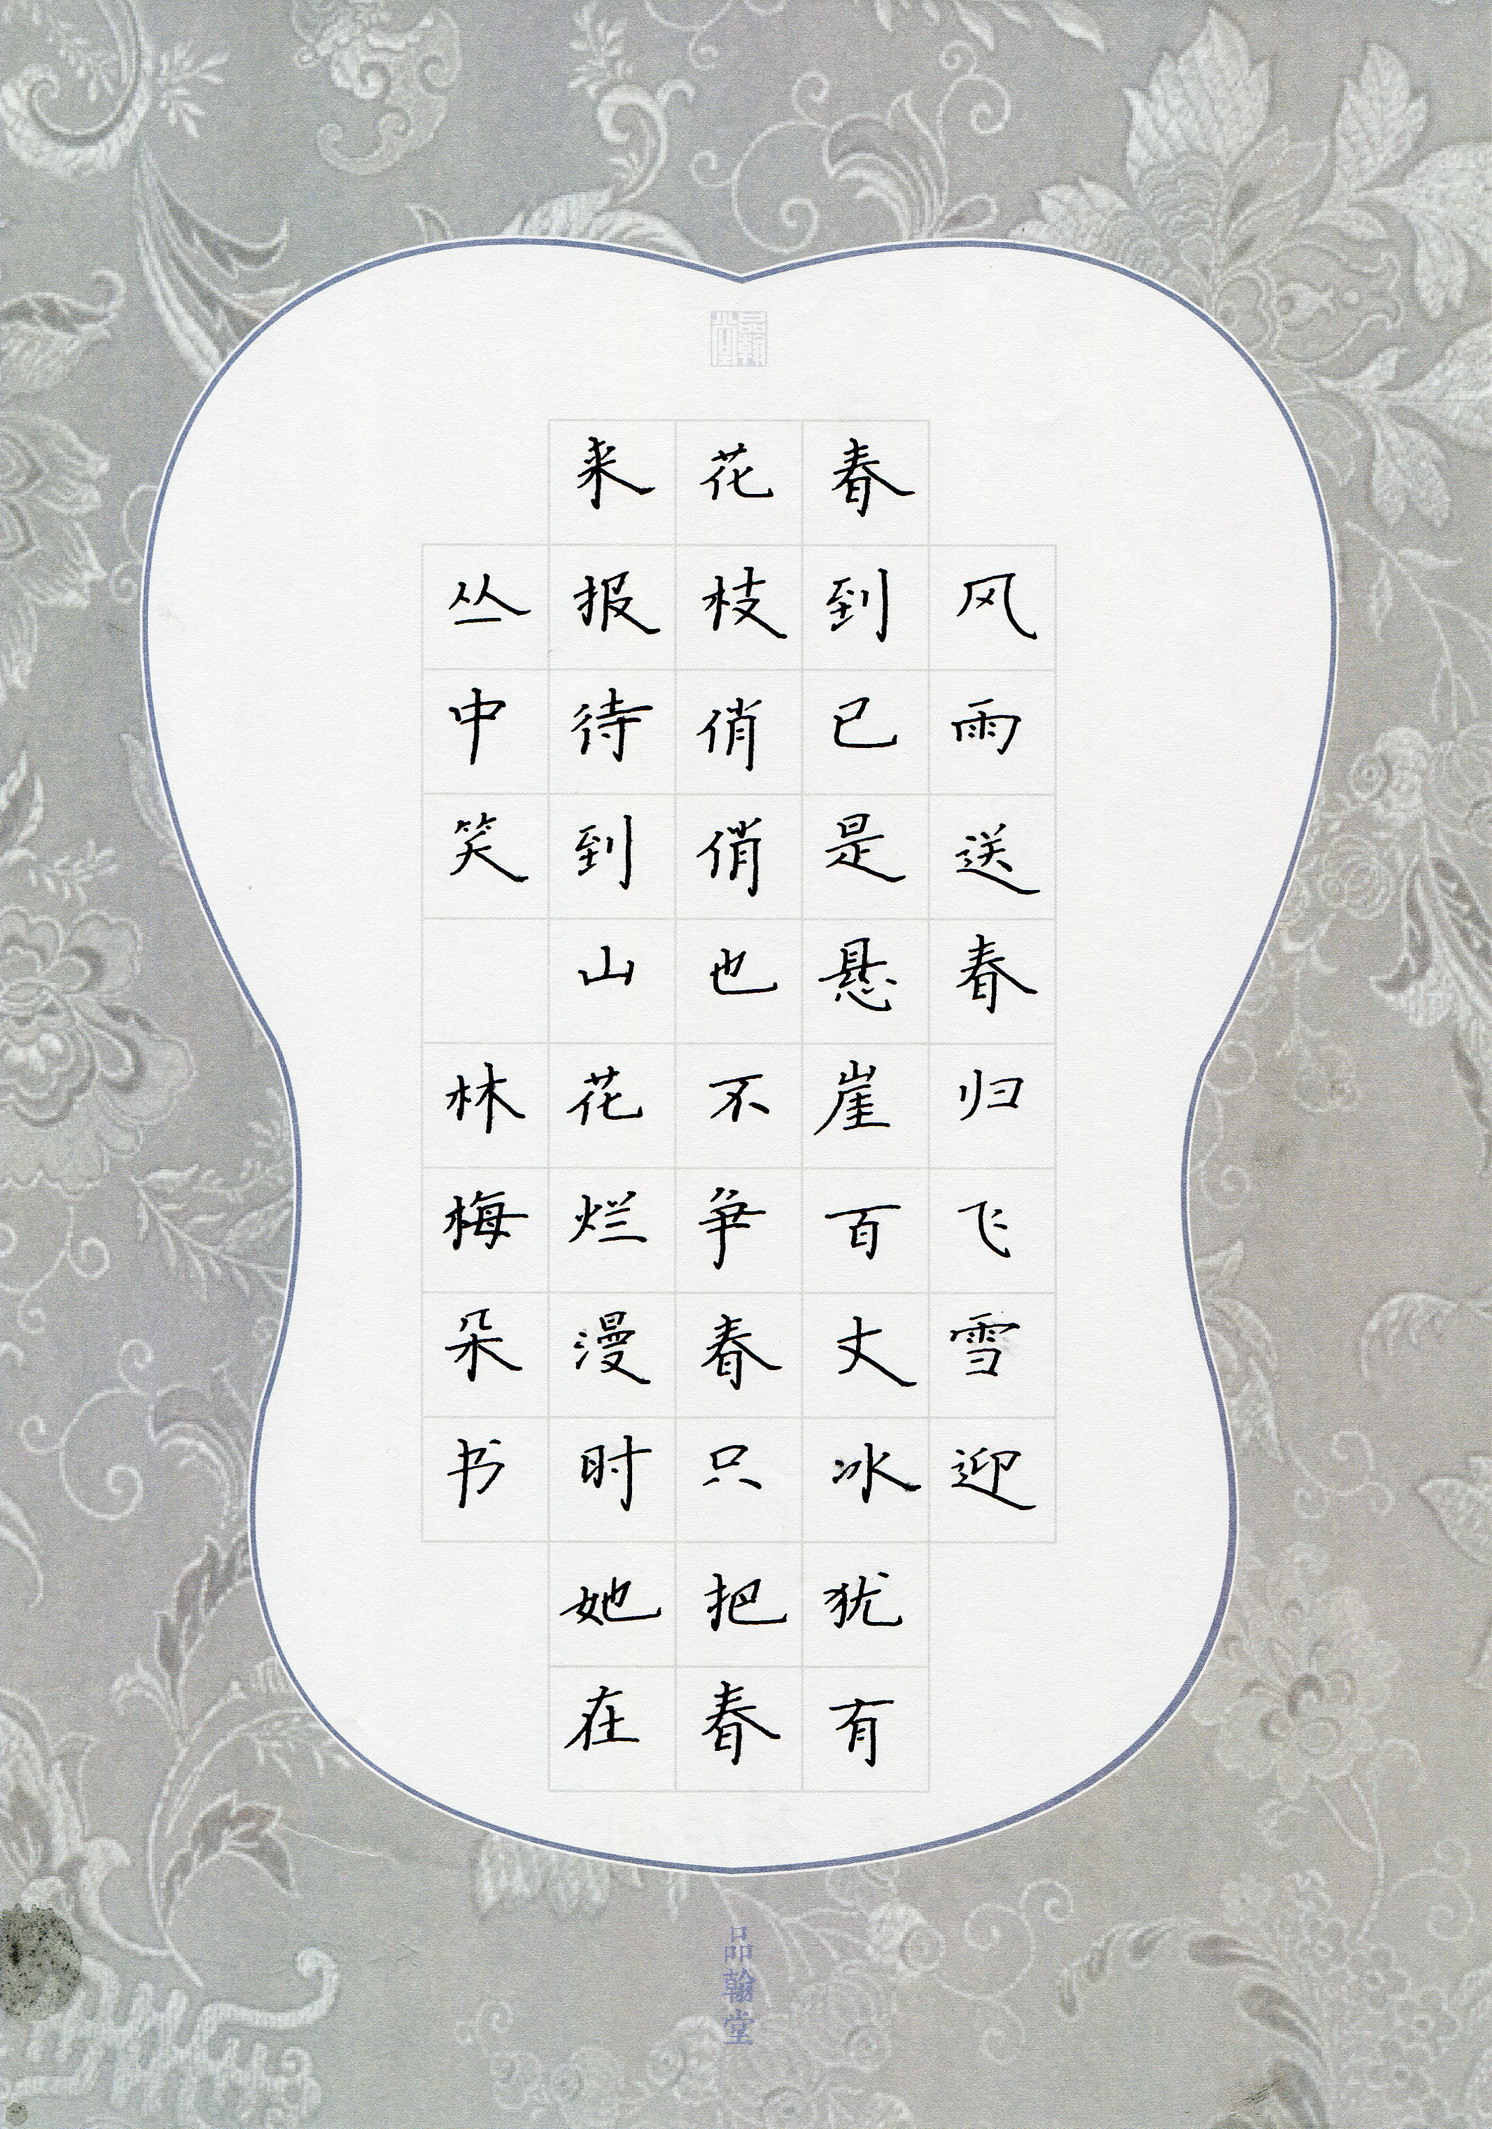 品翰堂
风雨送春归飞雪迎
春到已是悬崖百丈冰犹有
花枝俏俏也不争春只把春
来报待到山花烂漫时她在
丛中笑 林梅朵书
品翰堂